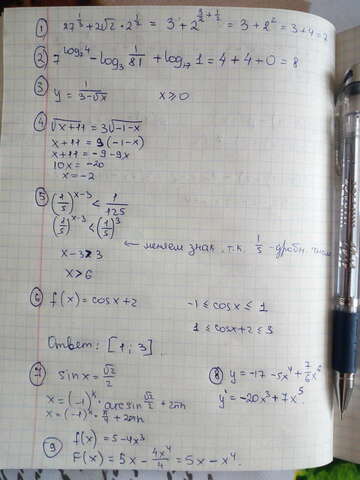 ① 27^(1/3) + 2√2 · 2^(1/2) = 3 + 2^(3/2 + 1/2) = 3 + 2² = 3 + 4 = 7
② 7^(log₇ 4) - log₃ 1/81 + log₁₇ 1 = 4 + 4 + 0 = 8
③ y = 1/(3-√x) x ≥ 0
④ √(x+11) = 3√(-1-x)
x + 11 = 9 (-1-x)
x + 11 = -9 - 9x
10x = -20
x = -2
⑤ (1/5)^(x-3) < 1/125
(1/5)^(x-3) < (1/5)^3
← меняем знак, т.к. 1/5 - дробн. число
x - 3 > 3
x > 6
⑥ f(x) = cosx + 2 -1 ≤ cosx ≤ 1
1 ≤ cosx + 2 ≤ 3
Ответ: [1; 3].
⑦ sin x = √2/2
x = (-1)^k · arcsin √2/2 + 2πn
x = (-1)^k · π/4 + 2πn
⑧ y = -17 - 5x⁴ + 7/6 x⁶
y' = -20x³ + 7x⁵.
⑨ f(x) = 5 - 4x³
F(x) = 5x - 4x⁴/4 = 5x - x⁴.